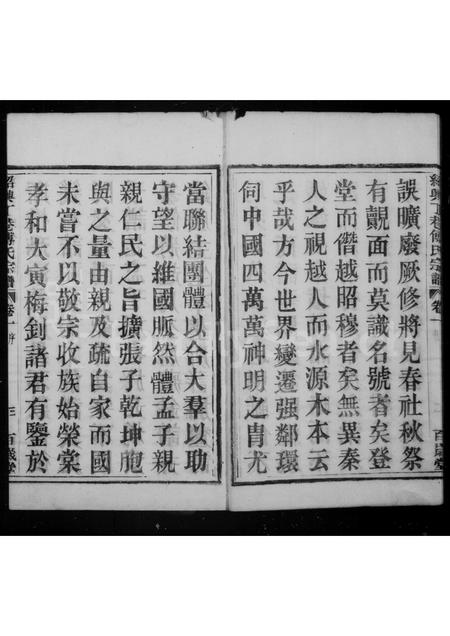 誤曠廢厥修將見春社秋祭
有覿面而莫識名號者矣登
堂而僭越昭穆者矣無異秦
人之視越人而水源木本云
乎哉方今世界變遷强鄰環
伺中國四萬萬神明之胄尤
當聯結團體以合大羣以助
守望以維國脈然體孟子親
親仁民之旨擴張子乾坤胞
與之量由親及疏自家而國
未嘗不以敬宗收族始榮棠
孝和大寅梅釗諸君有鑒於
傅氏宗譜 卷一 序 三 百歲堂